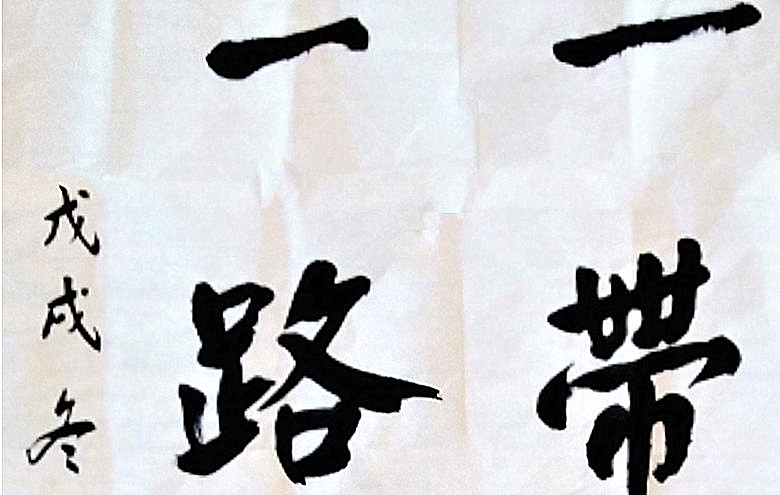 一帶
一路
戊戌冬